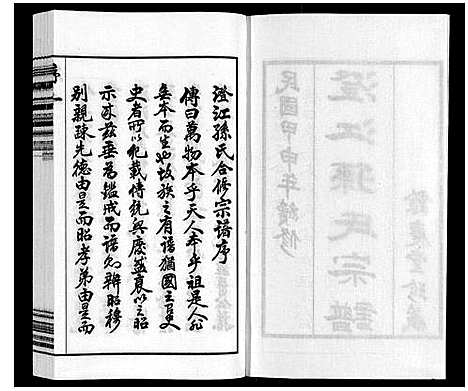 澄江孫氏合修宗譜序
傳曰萬物本乎天人本乎祖是人非
無本而生也故族之有譜猶國之有史
史者所以紀載傳統興廢盛衰以之昭
示來茲垂為鑑戒而譜則辨昭穆
別親疎先德由是而昭孝弟由是而
序 一
澄江孫氏宗譜
民國甲申年續修
珍藏